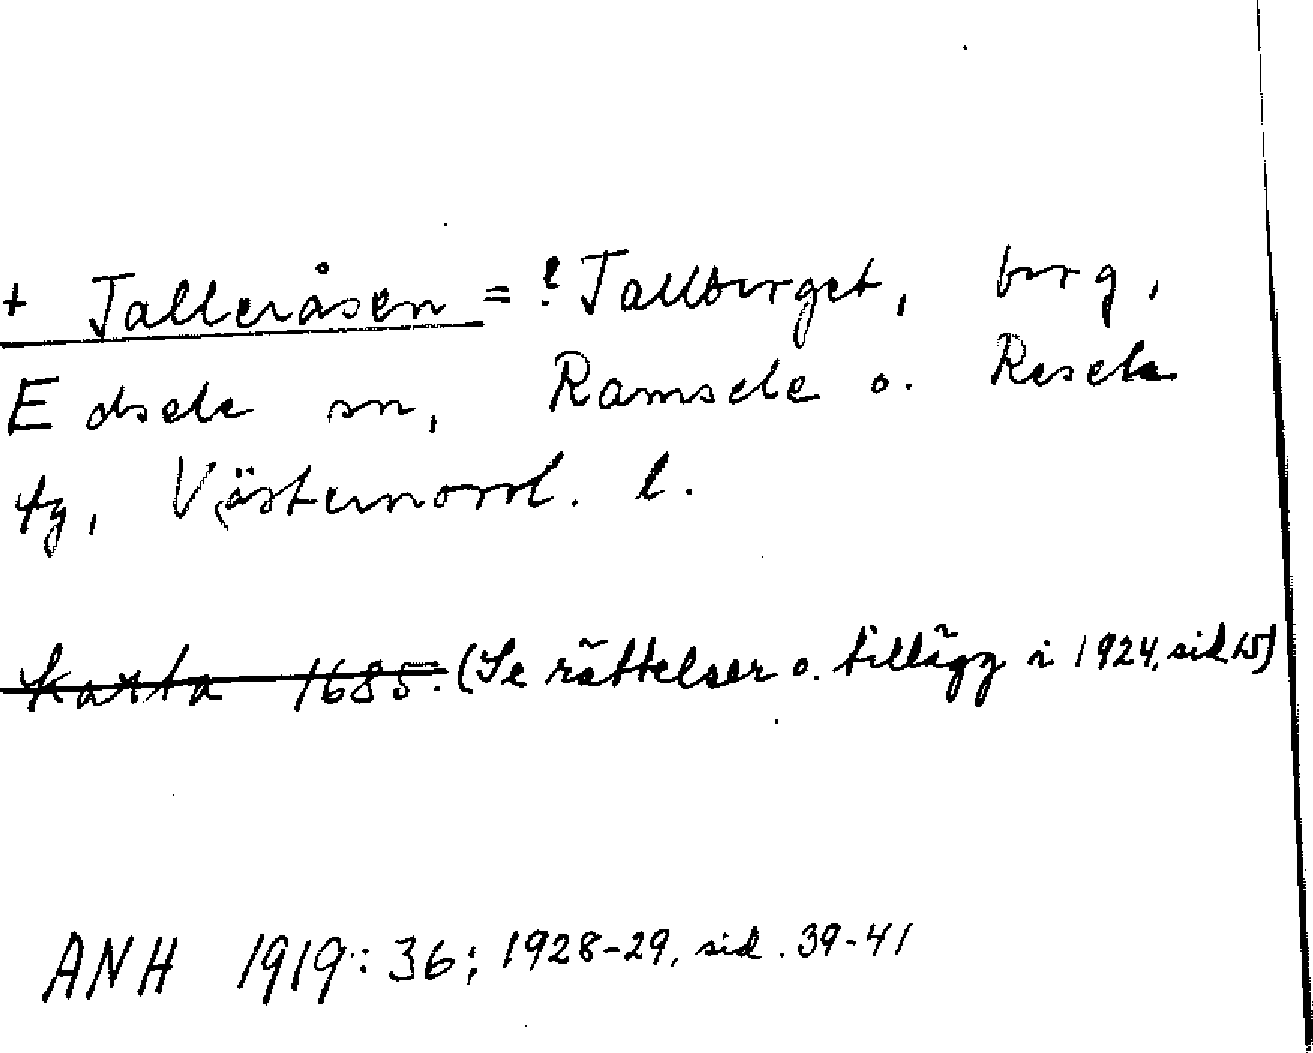 + Talleråsen = ? Tallberget, berg,
Edsele sn, Ramsele o. Resele
tg, Västernorrl. l.
Karta 1685. (Se rättelser o. tillägg i 1924, sid 15)
ANH 1919: 36; 1928-29, sid. 39-41